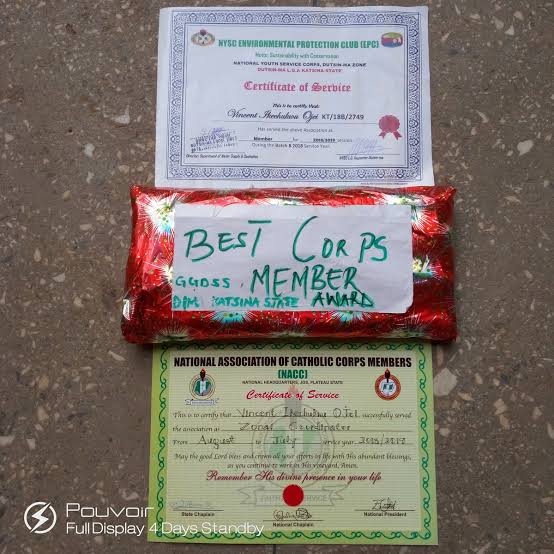 NYSC ENVIRONMENTAL PROTECTION CLUB (EPC)
Motto: Sustainability with Conservation
NATIONAL YOUTH SERVICE CORPS, DUTSIN-MA ZONE
DUTSIN-MA L.G.A KATSINA-STATE
Certificate of Service
This is to certify that:
Vincent Ikechukwu Ojei KT/18B/2749
Has served the above Association as
Member for 2018/2019 session
During the Batch B 2018 Service Year.
BEST CORPS
GGDSS MEMBER
D/M KATSINA STATE AWARD
NATIONAL ASSOCIATION OF CATHOLIC CORPS MEMBERS
(NACC)
NATIONAL HEADQUARTERS, JOS, PLATEAU STATE
Certificate of Service
This is to certify that Vincent Ikechukwu Ojei successfully served
the association as Zonal Coordinator
From August to July service year
May the good Lord bless and crown all your efforts of life with His abundant blessings,
as you continue to work in His vineyard, Amen.
Remember His divine presence in your life
State Chaplain
National Chaplain
National President
Pouvoir
Full Display 4 Days Standby